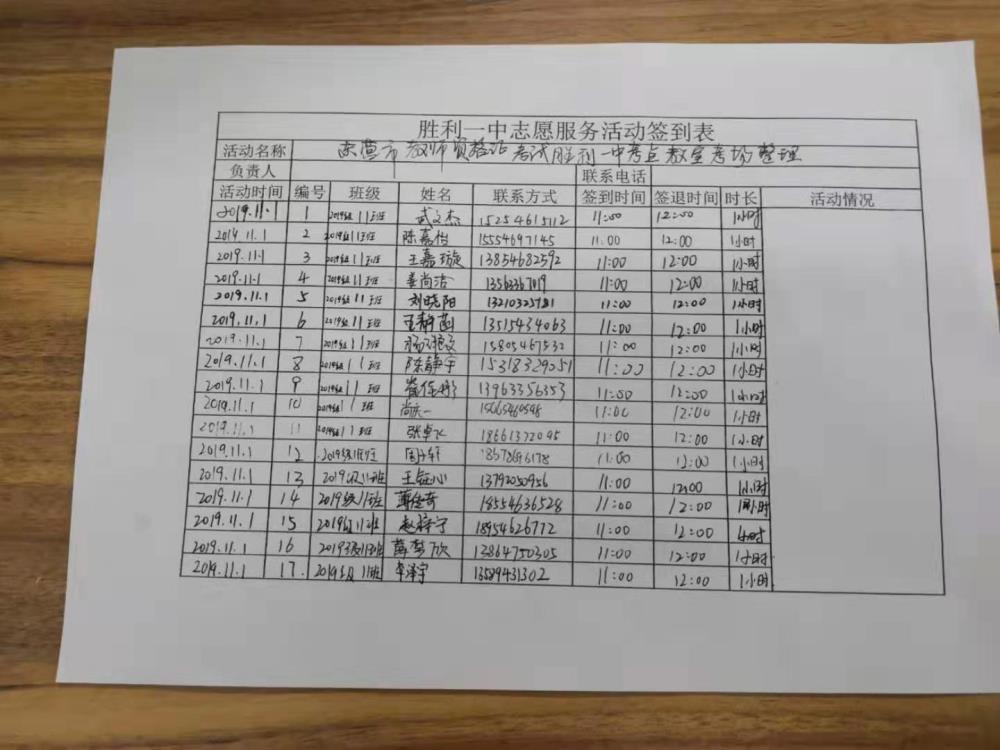 胜利一中志愿服务活动签到表
活动名称 东营市教师资格证考试胜利一中考点教室考场整理
负责人 联系电话
活动时间 编号 班级 姓名 联系方式 签到时间 签退时间 时长 活动情况
2019.11.1 1 2019级11班 武文杰 15254615112 11:00 12:00 1小时
2019.11.1 2 2019级11班 陈嘉怡 15554697145 11:00 12:00 1小时
2019.11.1 3 2019级11班 王嘉璇 13854682592 11:00 12:00 1小时
2019.11.1 4 2019级11班 姜尚洁 11:00 12:00 1小时
2019.11.1 5 2019级11班 刘晓阳 13210325781 11:00 12:00 1小时
2019.11.1 6 2019级11班 王静菡 13515434063 11:00 12:00 1小时
2019.11.1 7 2019级11班 15805467532 11:00 12:00 1小时
2019.11.1 8 2019级11班 陈静宇 15318329051 11:00 12:00 1小时
2019.11.1 9 2019级11班 13963356353 11:00 12:00 1小时
2019.11.1 10 2019级11班 尚庆一 11:00 12:00 1小时
2019.11.1 11 2019级11班 18661372095 11:00 12:00 1小时
2019.11.1 12 2019级11班 周子轩 11:00 12:00 1小时
2019.11.1 13 2019级11班 王钲心 13792050956 11:00 12:00 1小时
2019.11.1 14 2019级11班 18554636528 11:00 12:00 1小时
2019.11.1 15 2019级11班 赵梓宁 18954626772 11:00 12:00 1小时
2019.11.1 16 2019级11班 薛梦欣 13864750305 11:00 12:00 1小时
2019.11.1 17 2019级11班 李泽宇 13589431302 11:00 12:00 1小时